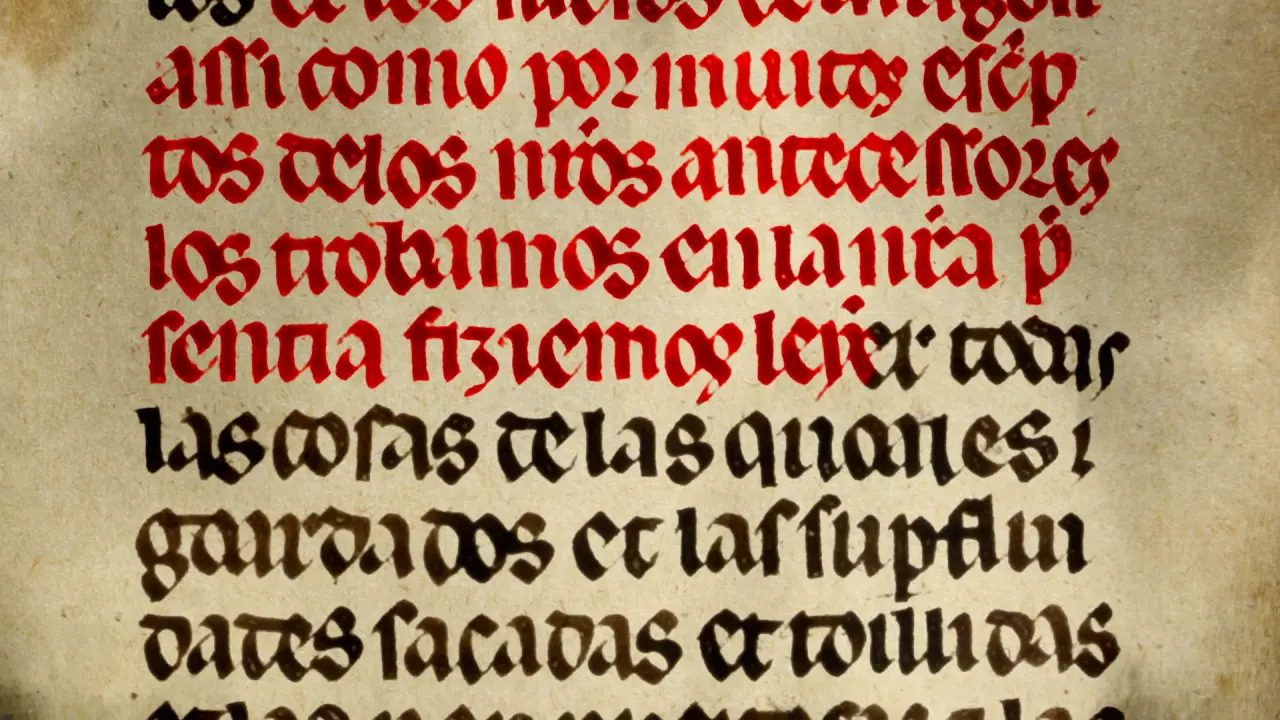 assi como por muitos escp
tos delos nros antecessores
los trobamos en la nra p
sentia fiziemos leyer et todas
las cosas de las quoales
goardados et las supflui
dades sacadas et toillidas